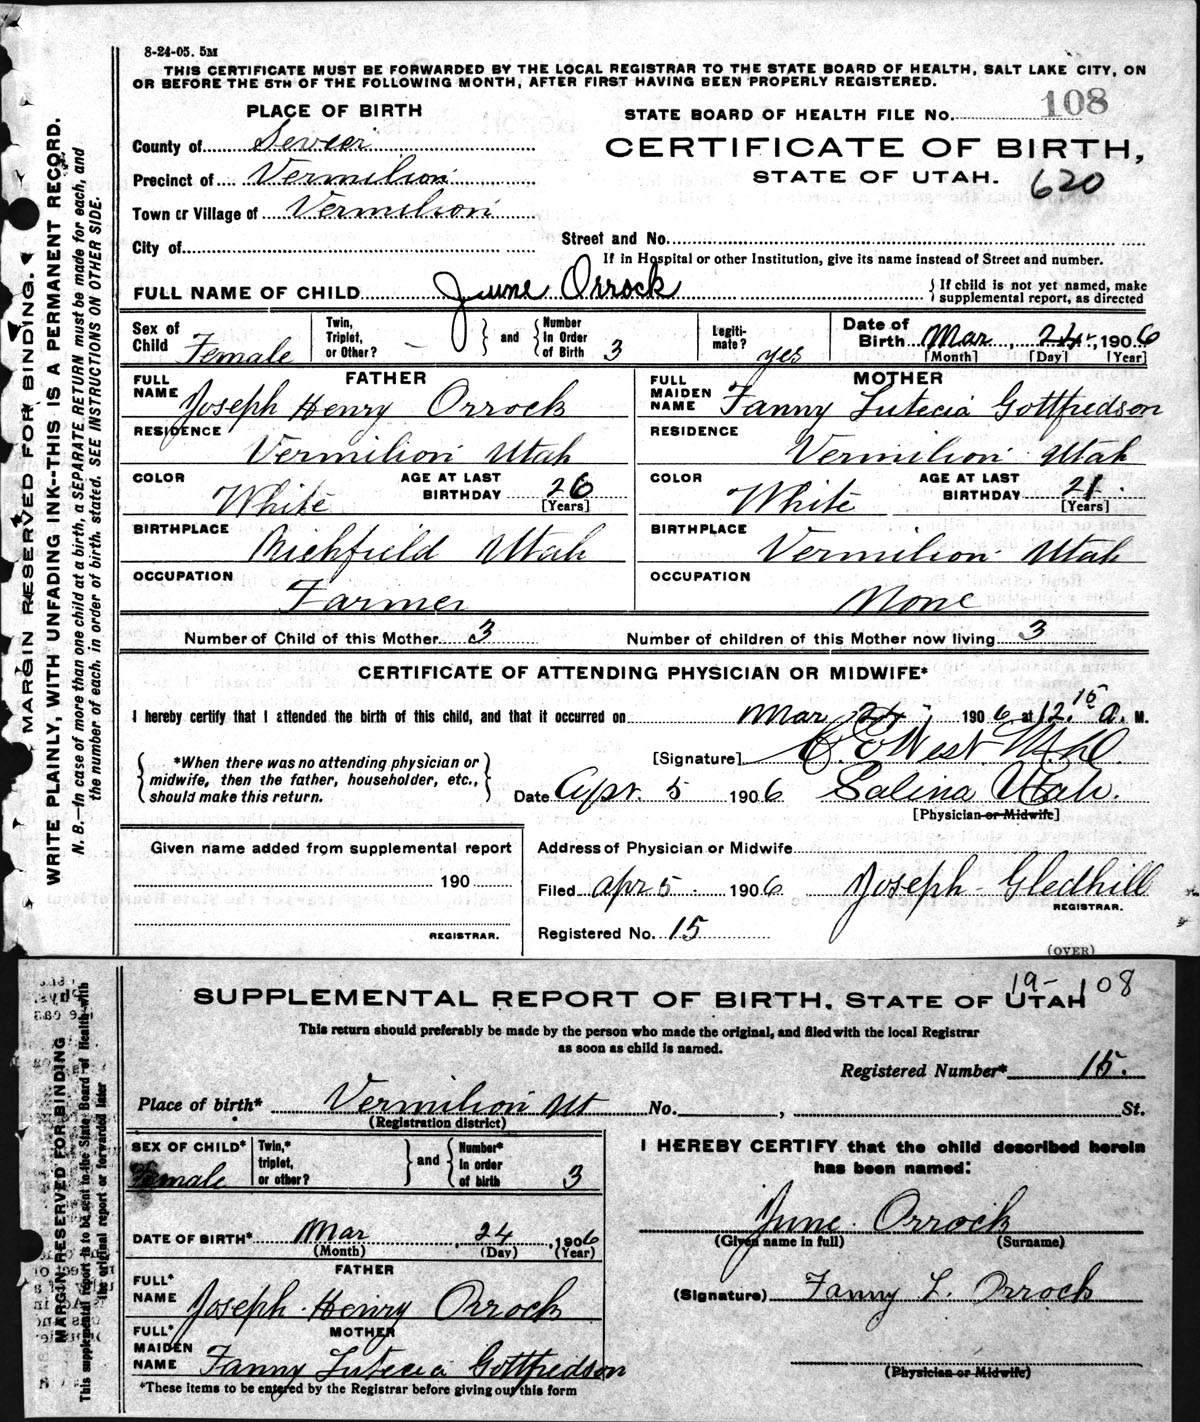 8-24-05. 5M
THIS CERTIFICATE MUST BE FORWARDED BY THE LOCAL REGISTRAR TO THE STATE BOARD OF HEALTH, SALT LAKE CITY, ON
OR BEFORE THE 5TH OF THE FOLLOWING MONTH, AFTER FIRST HAVING BEEN PROPERLY REGISTERED.
MARGIN RESERVED FOR BINDING.
WRITE PLAINLY, WITH UNFADING INK--THIS IS A PERMANENT RECORD.
N. B.—In case of more than one child at a birth, a SEPARATE RETURN must be made for each, and
the number of each, in order of birth, stated. SEE INSTRUCTIONS ON OTHER SIDE.
PLACE OF BIRTH
County of Sevier
Precinct of Vermilion
Town or Village of Vermilion
City of
STATE BOARD OF HEALTH FILE No. 108
CERTIFICATE OF BIRTH,
STATE OF UTAH.
620
Street and No.
If in Hospital or other Institution, give its name instead of Street and number.
FULL NAME OF CHILD June Orrock
{ If child is not yet named, make
supplemental report, as directed
Sex of Child Female
Twin, Triplet, or Other? –
and
Number in Order of Birth 3
Legiti-mate? yes
Date of Birth Mar 24, 1906
[Month] [Day] [Year]
FATHER
FULL NAME Joseph Henry Orrock
RESIDENCE Vermilion Utah
COLOR White
AGE AT LAST BIRTHDAY 26 [Years]
BIRTHPLACE Richfield Utah
OCCUPATION Farmer
MOTHER
FULL MAIDEN NAME Fanny Lutecia Gottfredson
RESIDENCE Vermilion Utah
COLOR White
AGE AT LAST BIRTHDAY 21 [Years]
BIRTHPLACE Vermilion Utah
OCCUPATION None
Number of Child of this Mother 3
Number of children of this Mother now living 3
CERTIFICATE OF ATTENDING PHYSICIAN OR MIDWIFE*
I hereby certify that I attended the birth of this child, and that it occurred on Mar 24, 1906 at 12.15 a. M.
{ *When there was no attending physician or
midwife, then the father, householder, etc.,
should make this return. }
[Signature] C. E. West M.D.
Date Apr. 5 1906 Salina Utah.
[Physician or Midwife]
Given name added from supplemental report
190
REGISTRAR.
Address of Physician or Midwife
Filed apr 5 1906 Joseph Gledhill
REGISTRAR.
Registered No. 15
(OVER)
19-108
SUPPLEMENTAL REPORT OF BIRTH, STATE OF UTAH
This return should preferably be made by the person who made the original, and filed with the local Registrar
as soon as child is named.
MARGIN RESERVED FOR BINDING
This supplemental report is to be sent to the State Board of Health with
the original report or forwarded later
Registered Number* 15.
Place of birth* Vermilion Ut No. , St.
(Registration district)
SEX OF CHILD* Female
Twin,* triplet, or other?
and
Number* in order of birth 3
DATE OF BIRTH* Mar 24, 1906
(Month) (Day) (Year)
FATHER
FULL* NAME Joseph Henry Orrock
MOTHER
FULL* MAIDEN NAME Fanny Lutecia Gottfredson
*These items to be entered by the Registrar before giving out this form
I HEREBY CERTIFY that the child described herein
has been named:
June Orrock
(Given name in full) (Surname)
(Signature) Fanny L. Orrock
(Physician or Midwife)